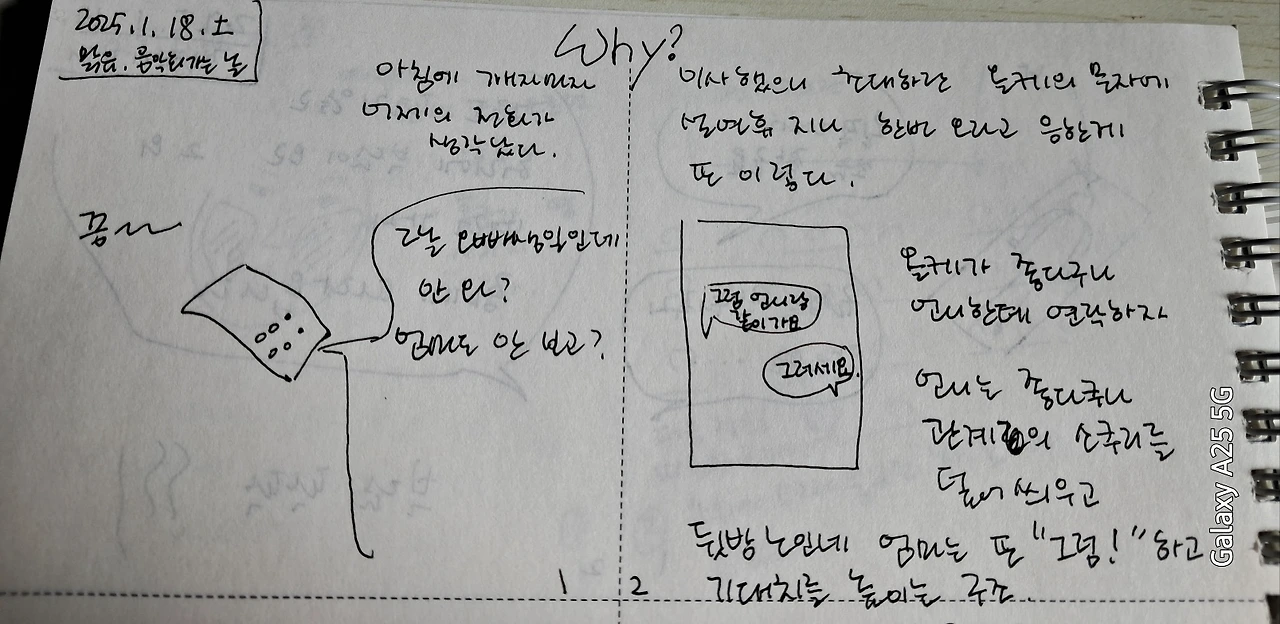 2025.1.18.土
맑음. 음악회가는 날
Why?
아침에 깨자마자
어제의 전화가
생각났다.
끔~~
그날 오빠생일인데
안 와?
엄마도 안 보고?
1
이사했으니 초대하란 올케의 문자에
설연휴 지나 한번 오라고 응한게
또 이렇다.
그럼 언니랑
같이가요
그러세요.
올케가 좋다구나
언니한테 연락하자
언니는 좋다구나
관계의 소쿠리를
덮어 씌우고
뒷방 노인네 엄마는 또 "그럼!" 하고
기대치를 높이는 구조.
2
Galaxy A25 5G